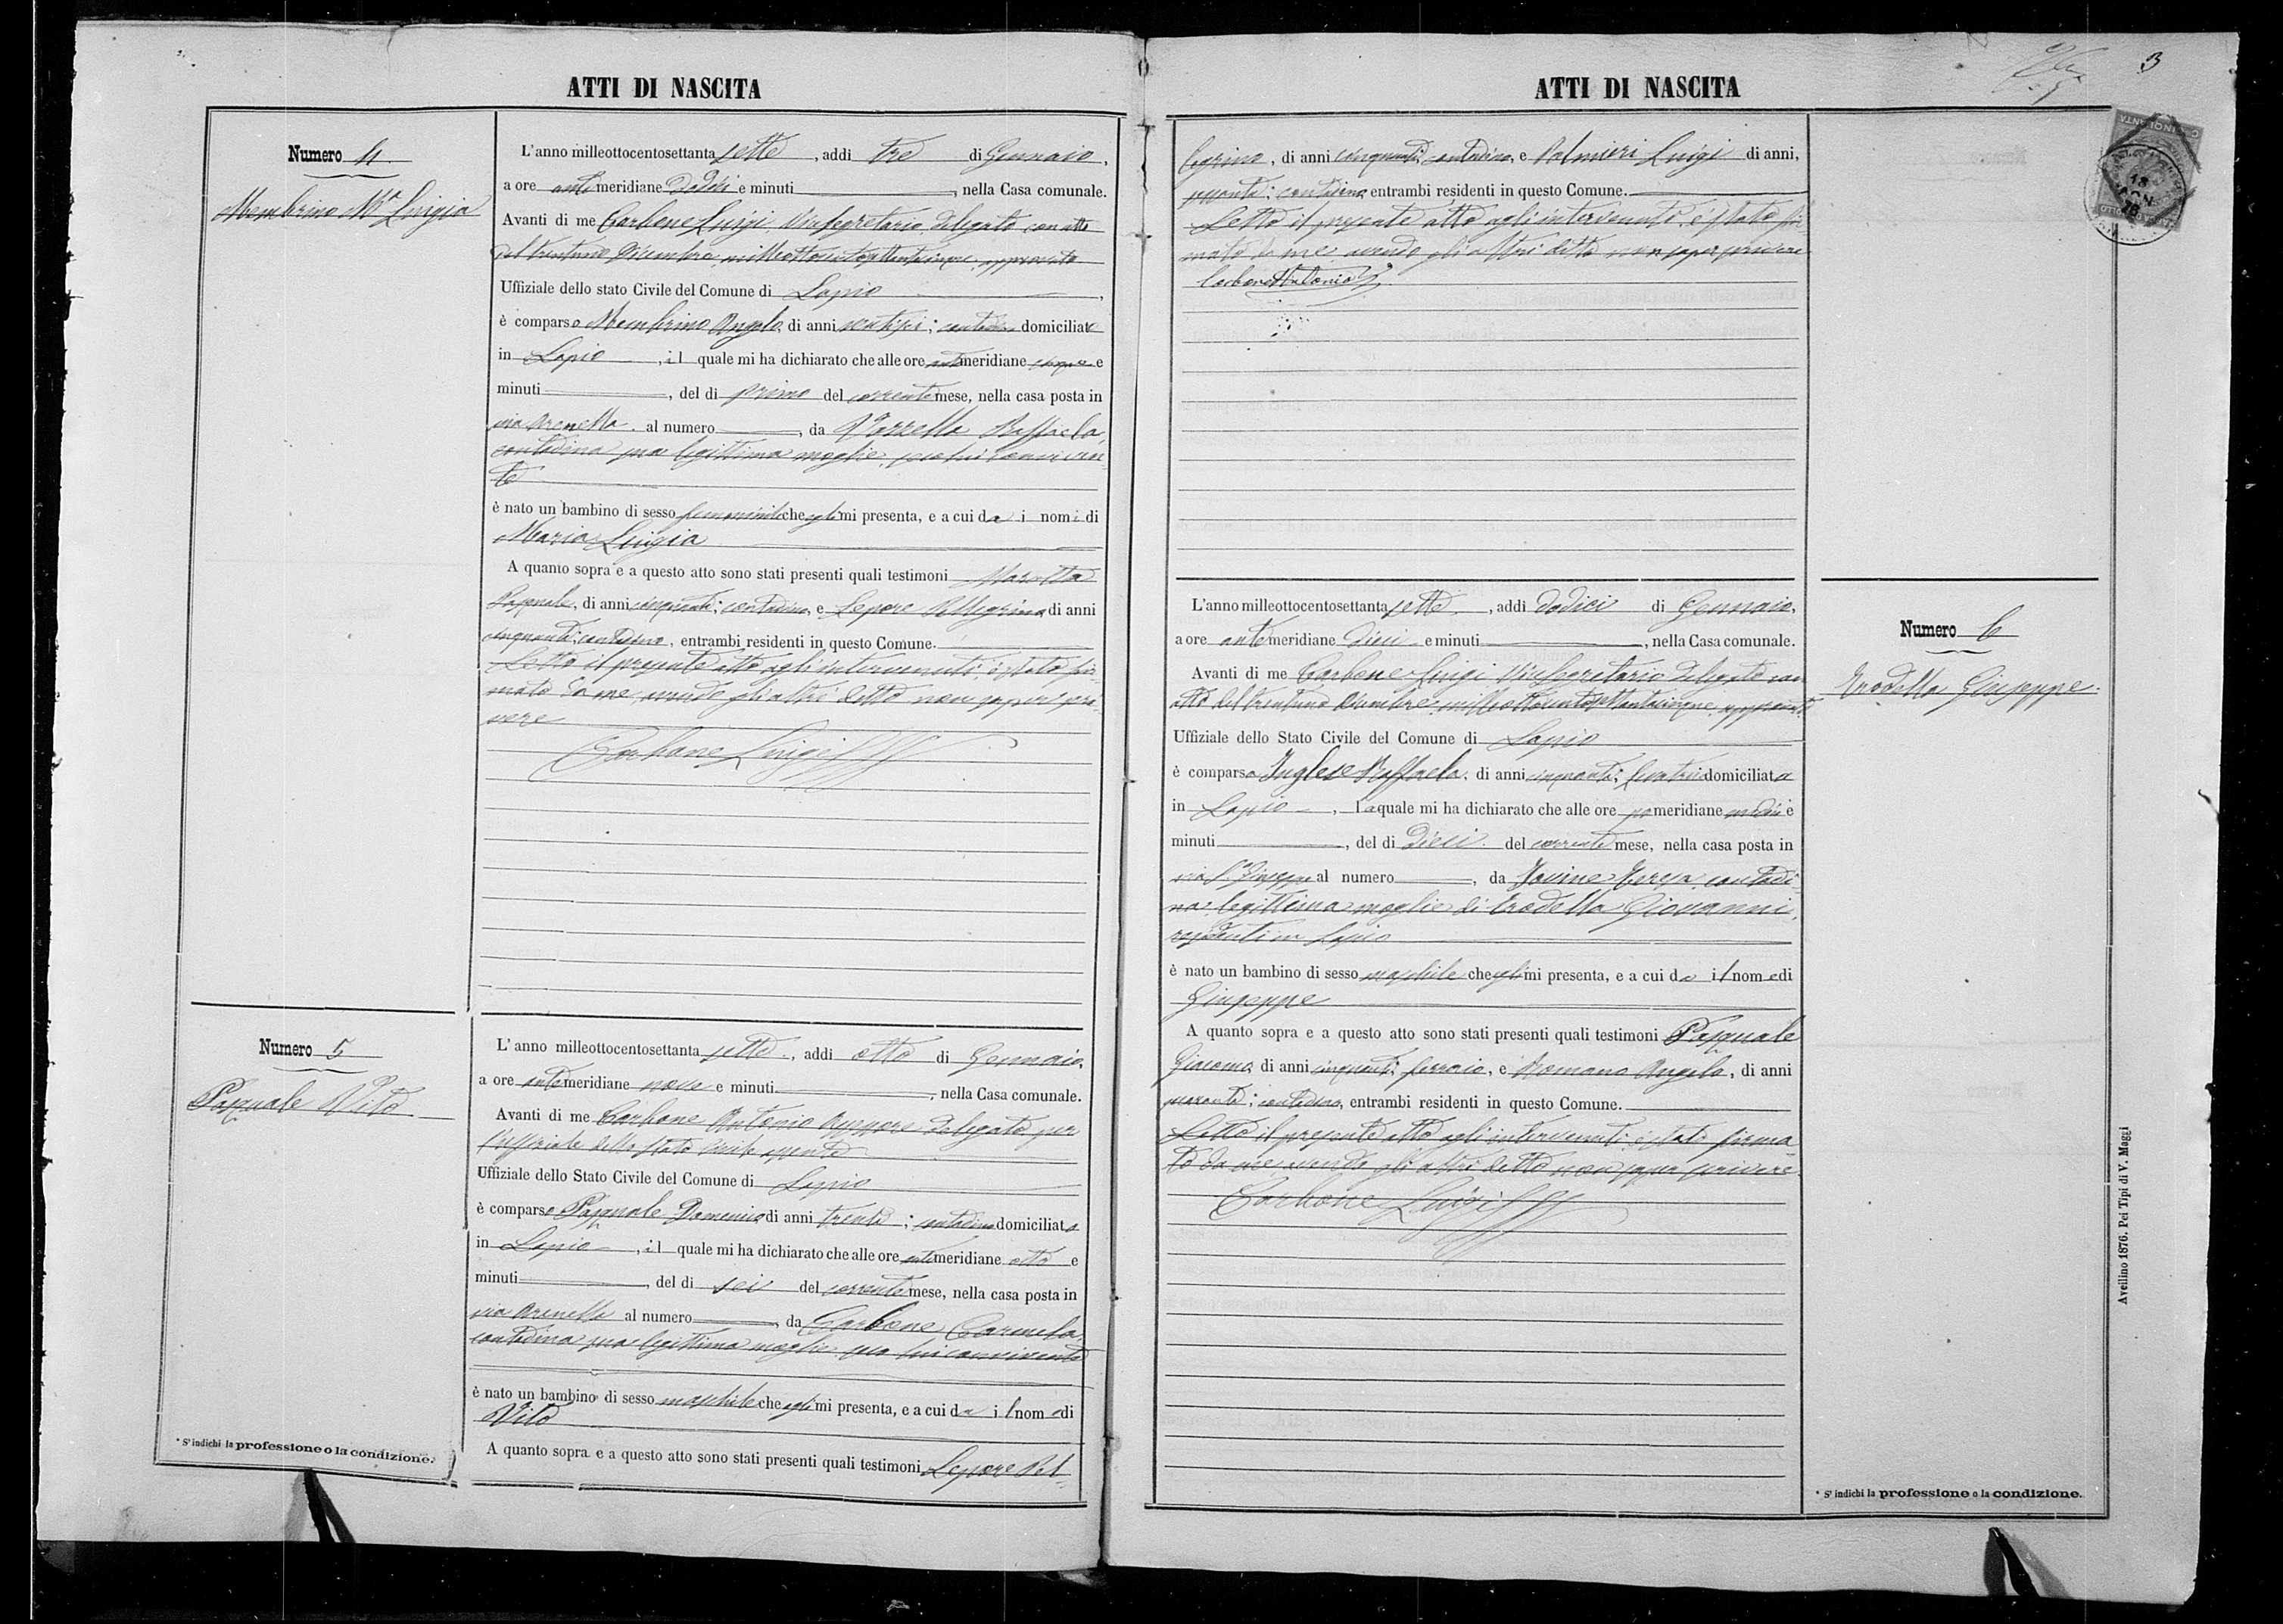 ATTI DI NASCITA
Numero 4.
Membrino Ma Luigia
L'anno milleottocentosettanta sette, addì tre di Gennaio,
a ore antimeridiane dodici e minuti, nella Casa comunale.
Avanti di me Carbone Luigi Vicesegretario delegato con atto
del trentuno Dicembre milleottocentosettantacinque approvato
Uffiziale dello stato Civile del Comune di Lapio,
è comparso Membrino Angelo, di anni ventisei; contadino domiciliato
in Lapio, il quale mi ha dichiarato che alle ore antimeridiane cinque e
minuti, del dì primo del corrente mese, nella casa posta in
via Arenella. al numero, da Vozzella Raffaela,
contadina sua legittima moglie, seco lui conviven-
te
è nato un bambino di sesso femminile che egli mi presenta, e a cui da i nomi di
Maria Luigia
A quanto sopra e a questo atto sono stati presenti quali testimoni
Pasquale, di anni cinquanta; contadino, e Lepore Pellegrino di anni
cinquanta; contadino, entrambi residenti in questo Comune.
Letto il presente atto agli intervenuti, è stato fir-
mato da me, avendo gli altri detto non saper scri-
vere
Carbone Luigi
Numero 5
Pasquale Vito
L'anno milleottocentosettanta sette, addì otto di Gennaio,
a ore antimeridiane nove e minuti, nella Casa comunale.
Avanti di me Carbone Antonio Assessore delegato per
l'uffiziale dello Stato Civile assente
Uffiziale dello Stato Civile del Comune di Lapio
è comparso Pasquale Domenico di anni trenta; contadino domiciliato
in Lapio, il quale mi ha dichiarato che alle ore antimeridiane otto e
minuti, del dì sei del corrente mese, nella casa posta in
via Arenella al numero, da Carbone Carmela,
contadina sua legittima moglie seco lui convivente
è nato un bambino di sesso maschile che egli mi presenta, e a cui da il nome di
Vito
A quanto sopra e a questo atto sono stati presenti quali testimoni Lepore Pel-
* S'indichi la professione o la condizione.
ATTI DI NASCITA
3
legrino, di anni cinquanta; contadino, e Palmieri Luigi di anni,
contadino, entrambi residenti in questo Comune.
Letto il presente atto agli intervenuti è stato fir-
mato da me avendo gli altri detto non saper scrivere
Carbone Antonio
L'anno milleottocentosettanta sette, addì dodici di Gennaio,
a ore antimeridiane dieci e minuti, nella Casa comunale.
Avanti di me Carbone Luigi Vicesegretario delegato con
atto del trentuno Dicembre milleottocentosettantacinque approvato
Uffiziale dello Stato Civile del Comune di Lapio
è comparsa Inglese Raffaela. di anni cinquanta; levatrice domiciliata
in Lapio, la quale mi ha dichiarato che alle ore pomeridiane undici e
minuti, del dì dieci del corrente mese, nella casa posta in
via S. Giuseppe al numero, da Jovine Teresa contadi-
na legittima moglie di Trodella Giovanni,
residenti in Lapio
è nato un bambino di sesso maschile che egli mi presenta, e a cui da il nome di
Giuseppe
A quanto sopra e a questo atto sono stati presenti quali testimoni Pasquale
Giacomo, di anni cinquanta; ferraio, e Romano Angelo, di anni
quaranta; contadino, entrambi residenti in questo Comune.
Letto il presente atto agli intervenuti è stato firma-
to da me avendo gli altri detto non saper scrivere.
Carbone Luigi
Numero 6
Trodella Giuseppe
Avellino 1876. Pei Tipi di V. Maggi
* S'indichi la professione o la condizione.